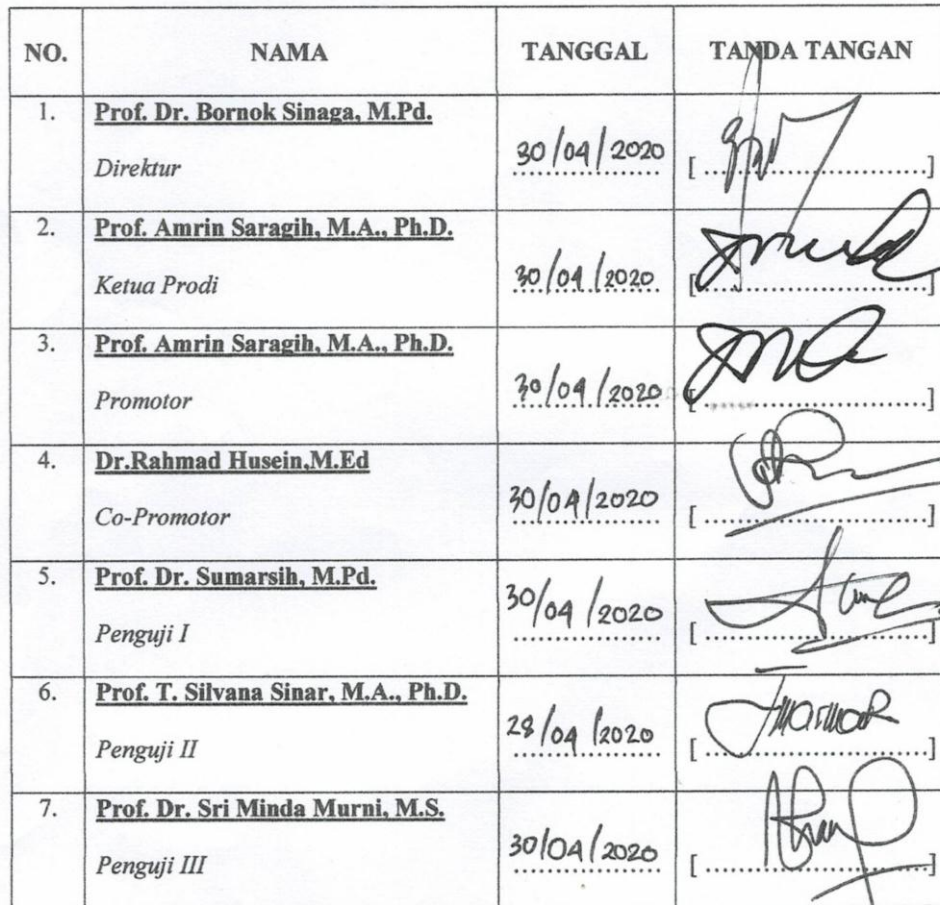 NO. NAMA TANGGAL TANDA TANGAN
1. Prof. Dr. Bornok Sinaga, M.Pd.
Direktur 30/04/2020 [ .................... ]
2. Prof. Amrin Saragih, M.A., Ph.D.
Ketua Prodi 30/04/2020 [ .................... ]
3. Prof. Amrin Saragih, M.A., Ph.D.
Promotor 30/04/2020 [ .................... ]
4. Dr.Rahmad Husein,M.Ed
Co-Promotor 30/04/2020 [ .................... ]
5. Prof. Dr. Sumarsih, M.Pd.
Penguji I 30/04/2020 [ .................... ]
6. Prof. T. Silvana Sinar, M.A., Ph.D.
Penguji II 28/04/2020 [ .................... ]
7. Prof. Dr. Sri Minda Murni, M.S.
Penguji III 30/04/2020 [ .................... ]